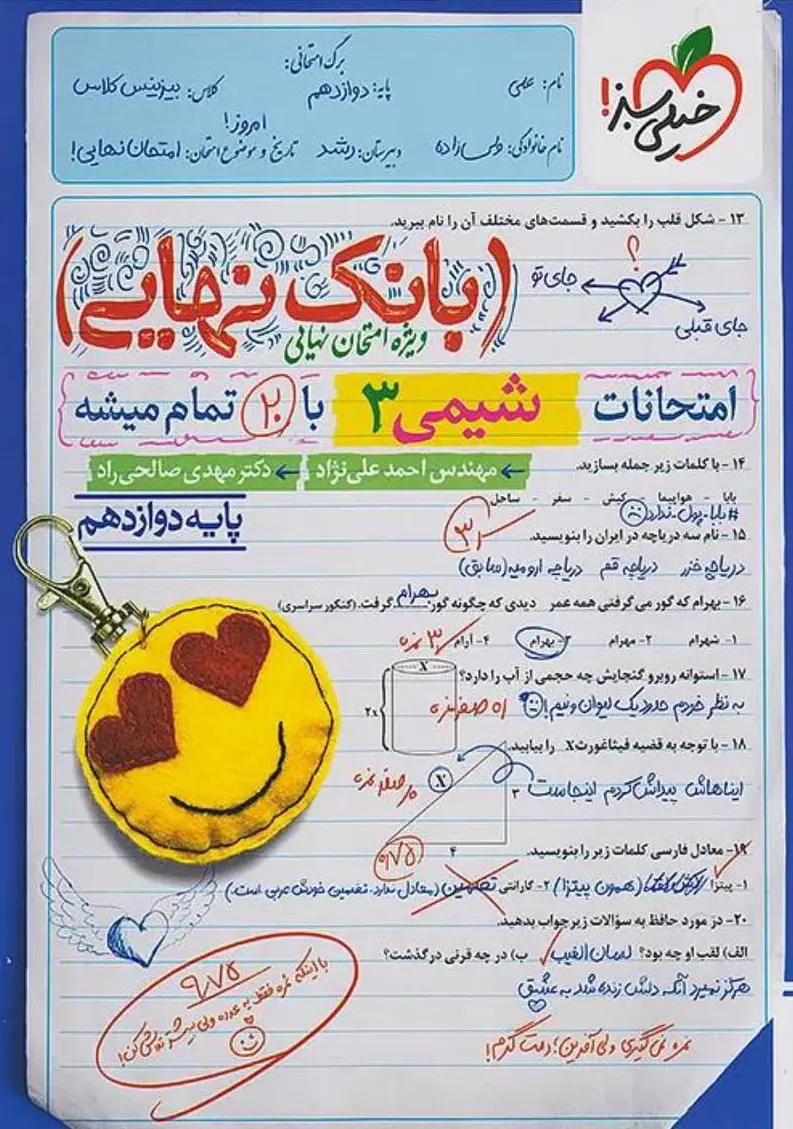 برگ امتحانی:
نام: علی
پایه: دوازدهم
کلاس: بیزینس کلاس
نام خانوادگی: ولی زاده
دبیرستان: رشد
تاریخ و موضوع امتحان: امروز! امتحان نهایی!
خیلی سبز!
۱۳ - شکل قلب را بکشید و قسمت‌های مختلف آن را نام ببرید.
؟
جای تو
جای قبلی
(بانک نهایی)
ویژه امتحان نهایی
امتحانات شیمی ۳ با ۲۰ تمام میشه
۱۴ - با کلمات زیر جمله بسازید.
مهندس احمد علی‌نژاد ← دکتر مهدی صالحی‌راد
بابا - هواپیما - کیش - سفر - ساحل
#بابا-پول-ندارد
پایه دوازدهم
۱۵ - نام سه دریاچه در ایران را بنویسید.
دریاچه خزر دریاچه قم دریاچه ارومیه (سابق)
۱۶ - بهرام که گور می‌گرفتی همه عمر دیدی که چگونه گور بهرام گرفت. (کنکور سراسری)
۱- شهرام ۲- مهرام ۳- بهرام ۴- آرام
۱۷ - استوانه روبرو گنجایش چه حجمی از آب را دارد؟
X
۲x
به نظر خودم حدود یک لیوان و نیم!
۱۸ - با توجه به قضیه فیثاغورث X را بیابید.
X
۳
۴
ایناهاش پیداش کردم اینجاست
۱۹- معادل فارسی کلمات زیر را بنویسید.
۱- پیتزا (همون پیتزا) ۲- گارانتی تضمین (معادل ندارد. تضمین خودش عربی است.)
۲۰- در مورد حافظ به سؤالات زیر جواب بدهید.
الف) لقب او چه بود؟ لسان الغیب ب) در چه قرنی درگذشت؟
هرگز نمیرد آنکه دلش زنده شد به عشق
۹٫۷۵
با اینکه نمره فقط یه عدده ولی بیشتر تلاش کن!
نمره نمی‌گیری ولی آفرین! دمت گرم!